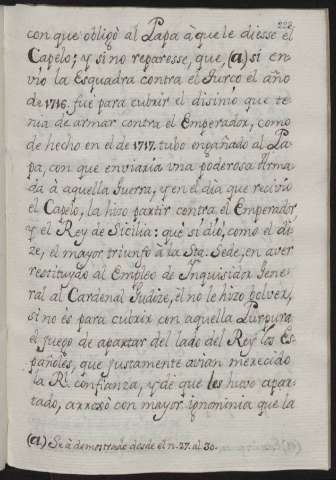 222
con que obligò al Papa à que le diesse el
Capelo; y si no reparesse, que, (a) si en
vio la Esquadra contra el Turco el año
de 1716. fué para cubrir el disinio que te
nia de armar contra el Emperador, como
de hecho en el de 1717. tubo engañado al Pa
pa, con que enviaria vna poderosa Arma
da à aquella Guerra, y en el dia que reciviò
el Capelo, la hizo partir contra el Emperador,
y el Rey de Sicilia: que si diò, como el di
ze, el mayor triunfo à la Sta. Sede, en aver
restituydo al Empleo de Inquisidor Gene
ral al Cardenal Judize, èl no le hizo bolver,
si no es para cubrir con aquella Purpura
el fuego de apartar del lado del Rey los Es
pañoles, que justamente avian merecido
la Rl. confianza, y de que los huvo apar
tado, arrojò con mayor ignominia que la
(a) Se à demostrado desde el n. 27. al 30.